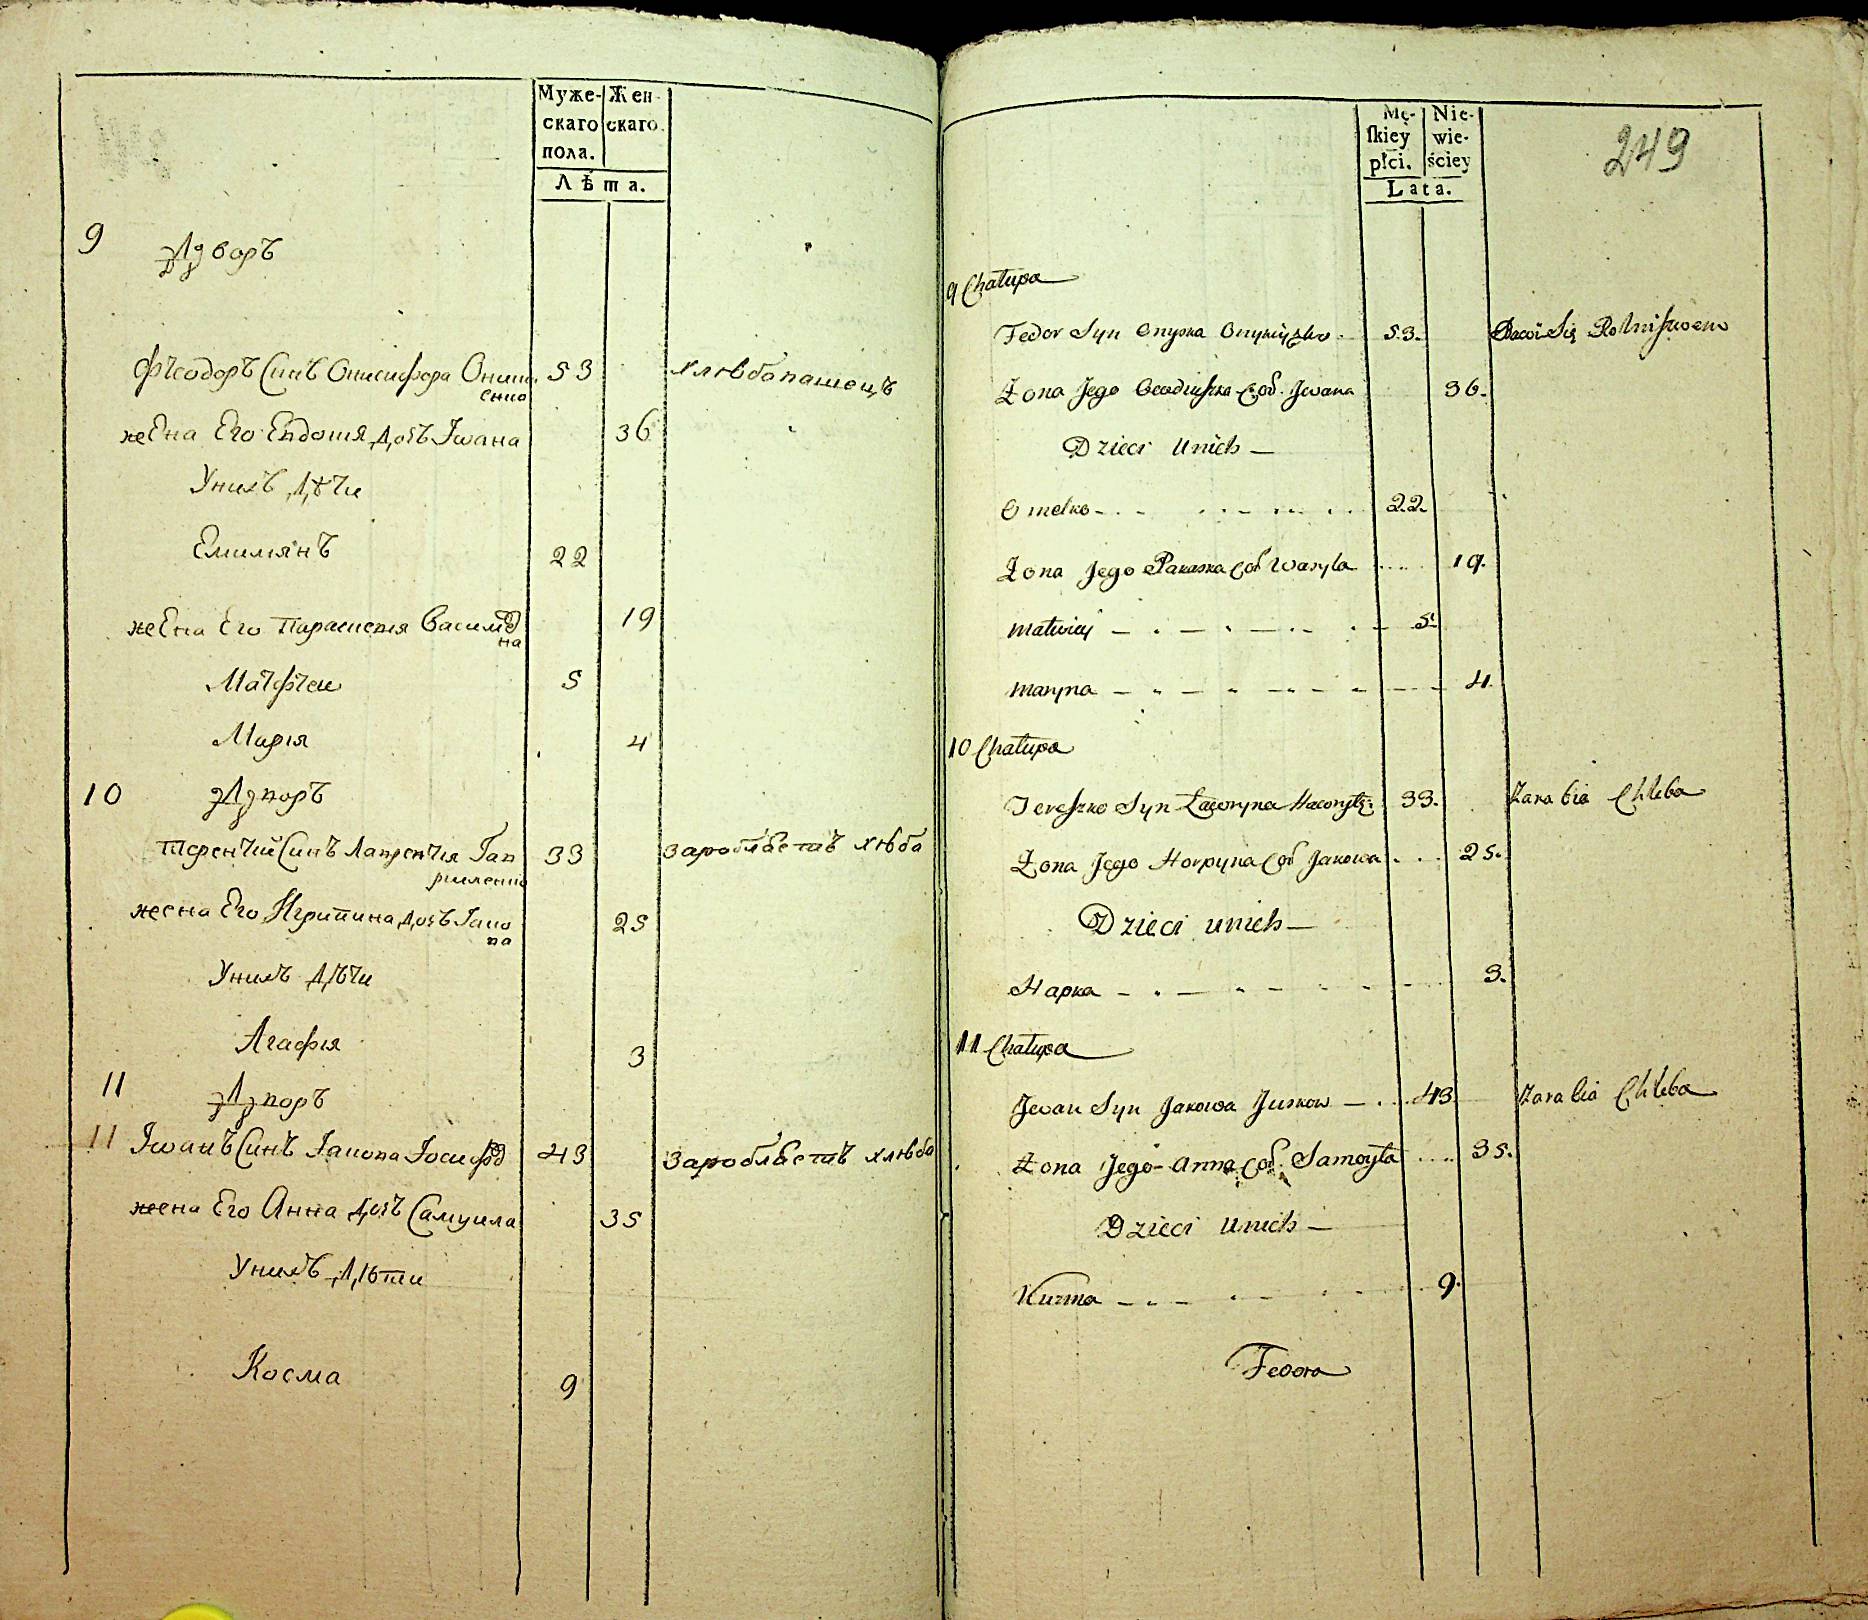 Муже-
скаго
пола.
Жен-
скаго.
Лѣта.
9 Дворъ
Ѳеодоръ Синъ Онисифора Онищенко 53 хлѣбопашецъ
жена Его Евдокия дочъ Iвана 36
Унихъ дѣти
Емилиянъ 22
жена Его Параскевия Василева 19
Матфей 5
Мария 4
10 Дворъ
Терентий Синъ Лаврентия 33 заробляетъ хлѣба
жена Его Агрипина дочъ Iакова 25
Унихъ дѣти
Агафия 3
11 Дворъ
11 Iванъ Синъ Iакова 43 заробляетъ хлѣба
жена Его Анна дочъ Самуила 35
Унихъ дѣти
Косма 9
Mę-
ſkiey
płci.
Nie-
wie-
ściey
Lata.
249
9 Chałupa
Fedor Syn Onyska 53. Bawi Się Rolnictwem
Żona Jego Cod. Jwana 36.
Dzieci Unich
Omelko 22.
Żona Jego Paraska Cod Wasyla 19.
Matwiey 5.
Maryna 4.
10 Chałupa
Tereszko Syn Ławryna 33. Zarabia Chleba
Żona Jego Horpyna Cod Jakowa 25.
Dzieci unich
Hapka 3.
11 Chałupa
Jwan Syn Jakowa Juskow 43 Zarabia Chleba
Żona Jego Anna Cod. Samoyła 35.
Dzieci Unich
Kuzma 9.
Fedora